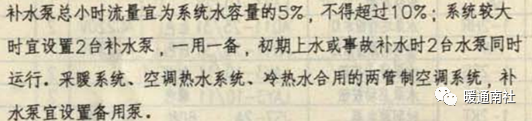 补水泵总小时流量宜为系统水容量的5%，不得超过10%；系统较大
时宜设置2台补水泵，一用一备，初期上水或事故补水时2台水泵同时
运行。采暖系统、空调热水系统、冷热水合用的两管制空调系统，补
水泵宜设置备用泵．
暖通南社